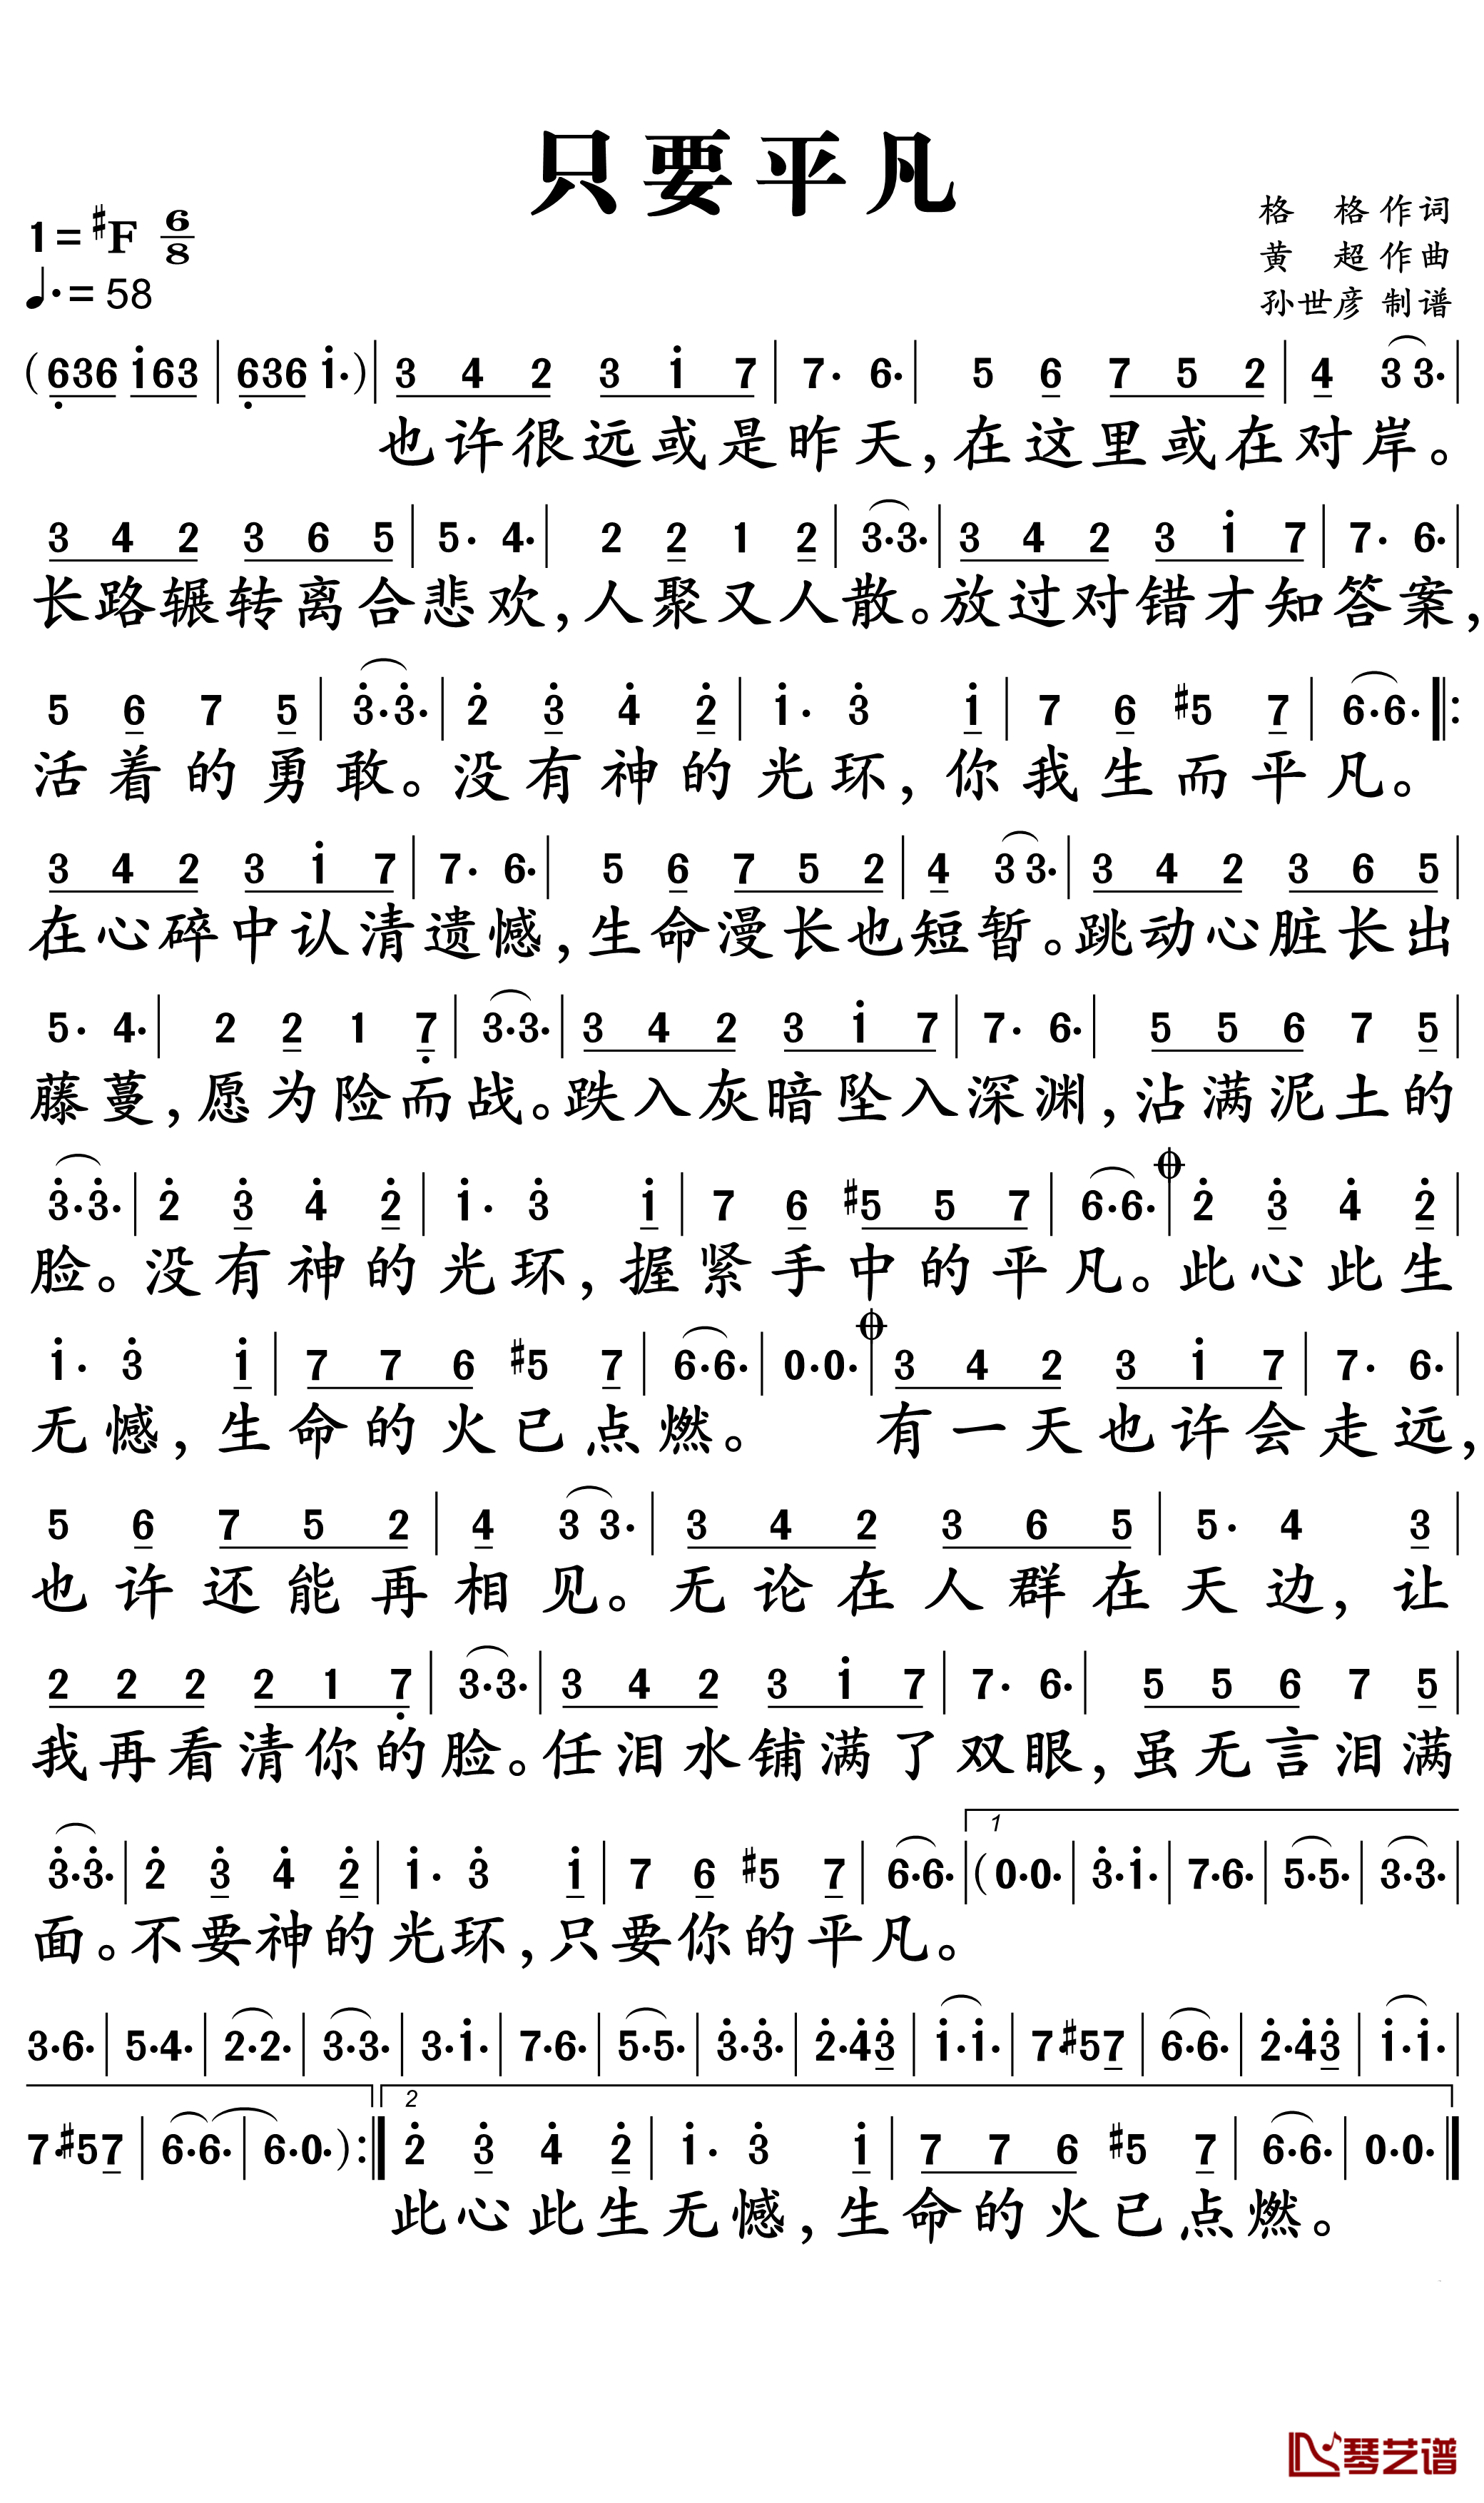 只要平凡
1=#F 6/8
♩.=58
格 格作词
黄 超作曲
孙世彦 制谱
(636 i63 | 636 i·) | 3 4 2 3 i 7 | 7· 6· | 5 6 7 5 2 | 4 3 3· |
也许很远或是昨天,在这里或在对岸。
3 4 2 3 6 5 | 5· 4· | 2 2 1 2 | 3·3· | 3 4 2 3 i 7 | 7· 6· |
长路辗转离合悲欢,人聚又人散。放过对错才知答案,
5 6 7 5 | 3·3· | 2 3 4 2 | i· 3 i | 7 6 #5 7 | 6·6· ‖:
活着的勇敢。没有神的光环,你我生而平凡。
3 4 2 3 i 7 | 7· 6· | 5 6 7 5 2 | 4 3 3· | 3 4 2 3 6 5 |
在心碎中认清遗憾,生命漫长也短暂。跳动心脏长出
5· 4· | 2 2 1 7 | 3·3· | 3 4 2 3 i 7 | 7· 6· | 5 5 6 7 5 |
藤蔓,愿为险而战。跌入灰暗坠入深渊,沾满泥土的
3·3· | 2 3 4 2 | i· 3 i | 7 6 #5 5 7 | 6·6· | 2 3 4 2 |
脸。没有神的光环,握紧手中的平凡。此心此生
i· 3 i | 7 7 6 #5 7 | 6·6· | 0·0· | 3 4 2 3 i 7 | 7· 6· |
无憾,生命的火已点燃。 有一天也许会走远,
5 6 7 5 2 | 4 3 3· | 3 4 2 3 6 5 | 5· 4 3 |
也许还能再相见。无论在人群在天边,让
2 2 2 2 1 7 | 3·3· | 3 4 2 3 i 7 | 7· 6· | 5 5 6 7 5 |
我再看清你的脸。任泪水铺满了双眼,虽无言泪满
1
3·3· | 2 3 4 2 | i· 3 i | 7 6 #5 7 | 6·6· | (0·0· | 3·i· | 7·6· | 5·5· | 3·3· |
面。不要神的光环,只要你的平凡。
3·6· | 5·4· | 2·2· | 3·3· | 3·i· | 7·6· | 5·5· | 3·3· | 2·43 | i·i· | 7·#57 | 6·6· | 2·43 | i·i· |
2
7·#57 | 6·6· | 6·0·) :‖ 2 3 4 2 | i· 3 i | 7 7 6 #5 7 | 6·6· | 0·0· ‖
此心此生无憾,生命的火已点燃。
琴艺谱